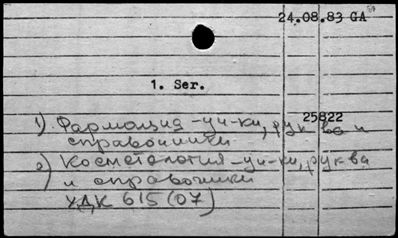 24.08.83 GA
1. Ser.
25822
1) Фармация -уч-ки, рук-ва и
справочники
2) Косметология -уч-ки, рук-ва
и справочники
УДК 615 (07)